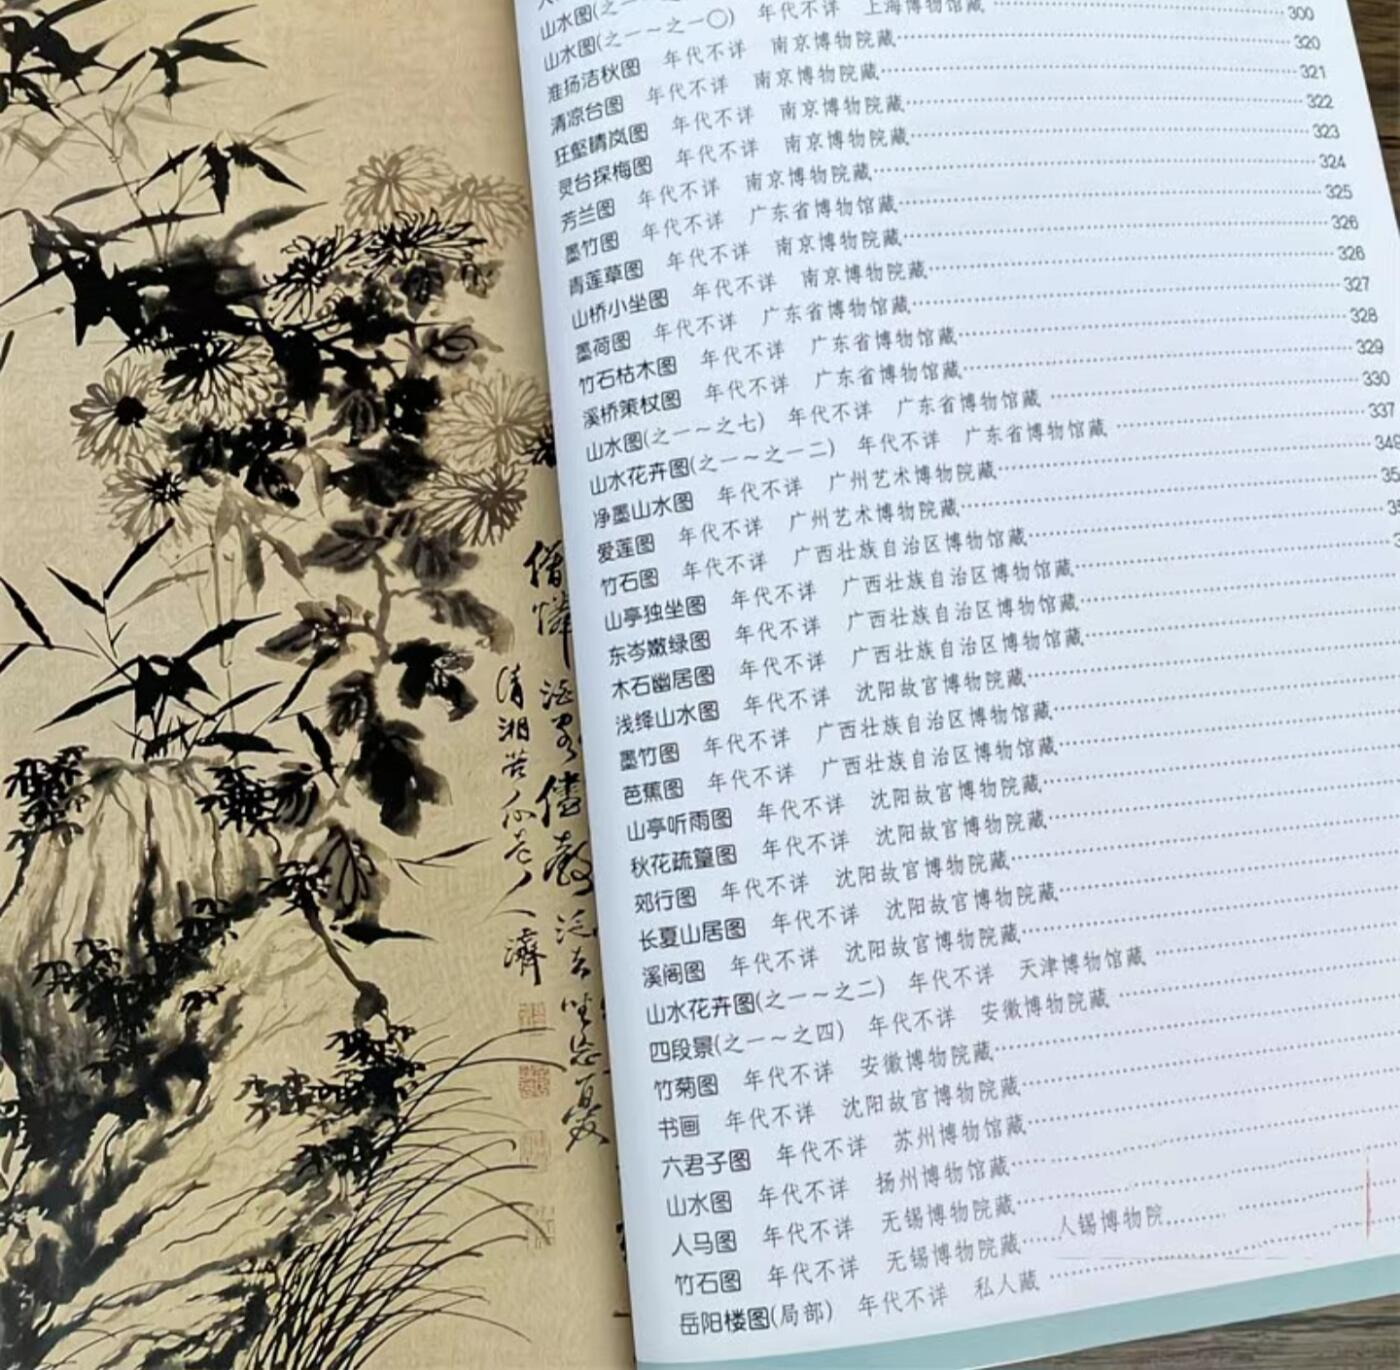 清湘苦瓜老人济
山水图(之一
山水图(之一～之一〇) 年代不详 上海博物馆藏 300
淮扬洁秋图 年代不详 南京博物院藏 320
清凉台图 年代不详 南京博物院藏 321
狂壑晴岚图 年代不详 南京博物院藏 322
灵台探梅图 年代不详 南京博物院藏 323
芳兰图 年代不详 南京博物院藏 324
墨竹图 年代不详 广东省博物馆藏 325
青莲草图 年代不详 南京博物院藏 326
山桥小坐图 年代不详 南京博物院藏 326
墨荷图 年代不详 广东省博物馆藏 327
竹石枯木图 年代不详 广东省博物馆藏 328
溪桥策杖图 年代不详 广东省博物馆藏 329
山水图(之一～之七) 年代不详 广东省博物馆藏 330
山水花卉图(之一～之一二) 年代不详 广东省博物馆藏 337
净墨山水图 年代不详 广州艺术博物院藏
爱莲图 年代不详 广州艺术博物院藏
竹石图 年代不详 广西壮族自治区博物馆藏
山亭独坐图 年代不详 广西壮族自治区博物馆藏
东岑嫩绿图 年代不详 广西壮族自治区博物馆藏
木石幽居图 年代不详 广西壮族自治区博物馆藏
浅绛山水图 年代不详 沈阳故宫博物院藏
墨竹图 年代不详 广西壮族自治区博物馆藏
芭蕉图 年代不详 广西壮族自治区博物馆藏
山亭听雨图 年代不详 沈阳故宫博物院藏
秋花疏篁图 年代不详 沈阳故宫博物院藏
郊行图 年代不详 沈阳故宫博物院藏
长夏山居图 年代不详 沈阳故宫博物院藏
溪阁图 年代不详 沈阳故宫博物院藏
山水花卉图(之一～之二) 年代不详 天津博物馆藏
四段景(之一～之四) 年代不详 安徽博物院藏
竹菊图 年代不详 安徽博物院藏
书画 年代不详 沈阳故宫博物院藏
六君子图 年代不详 苏州博物馆藏
山水图 年代不详 扬州博物馆藏
人马图 年代不详 无锡博物院藏
竹石图 年代不详 无锡博物院藏 人锡博物院
岳阳楼图(局部) 年代不详 私人藏